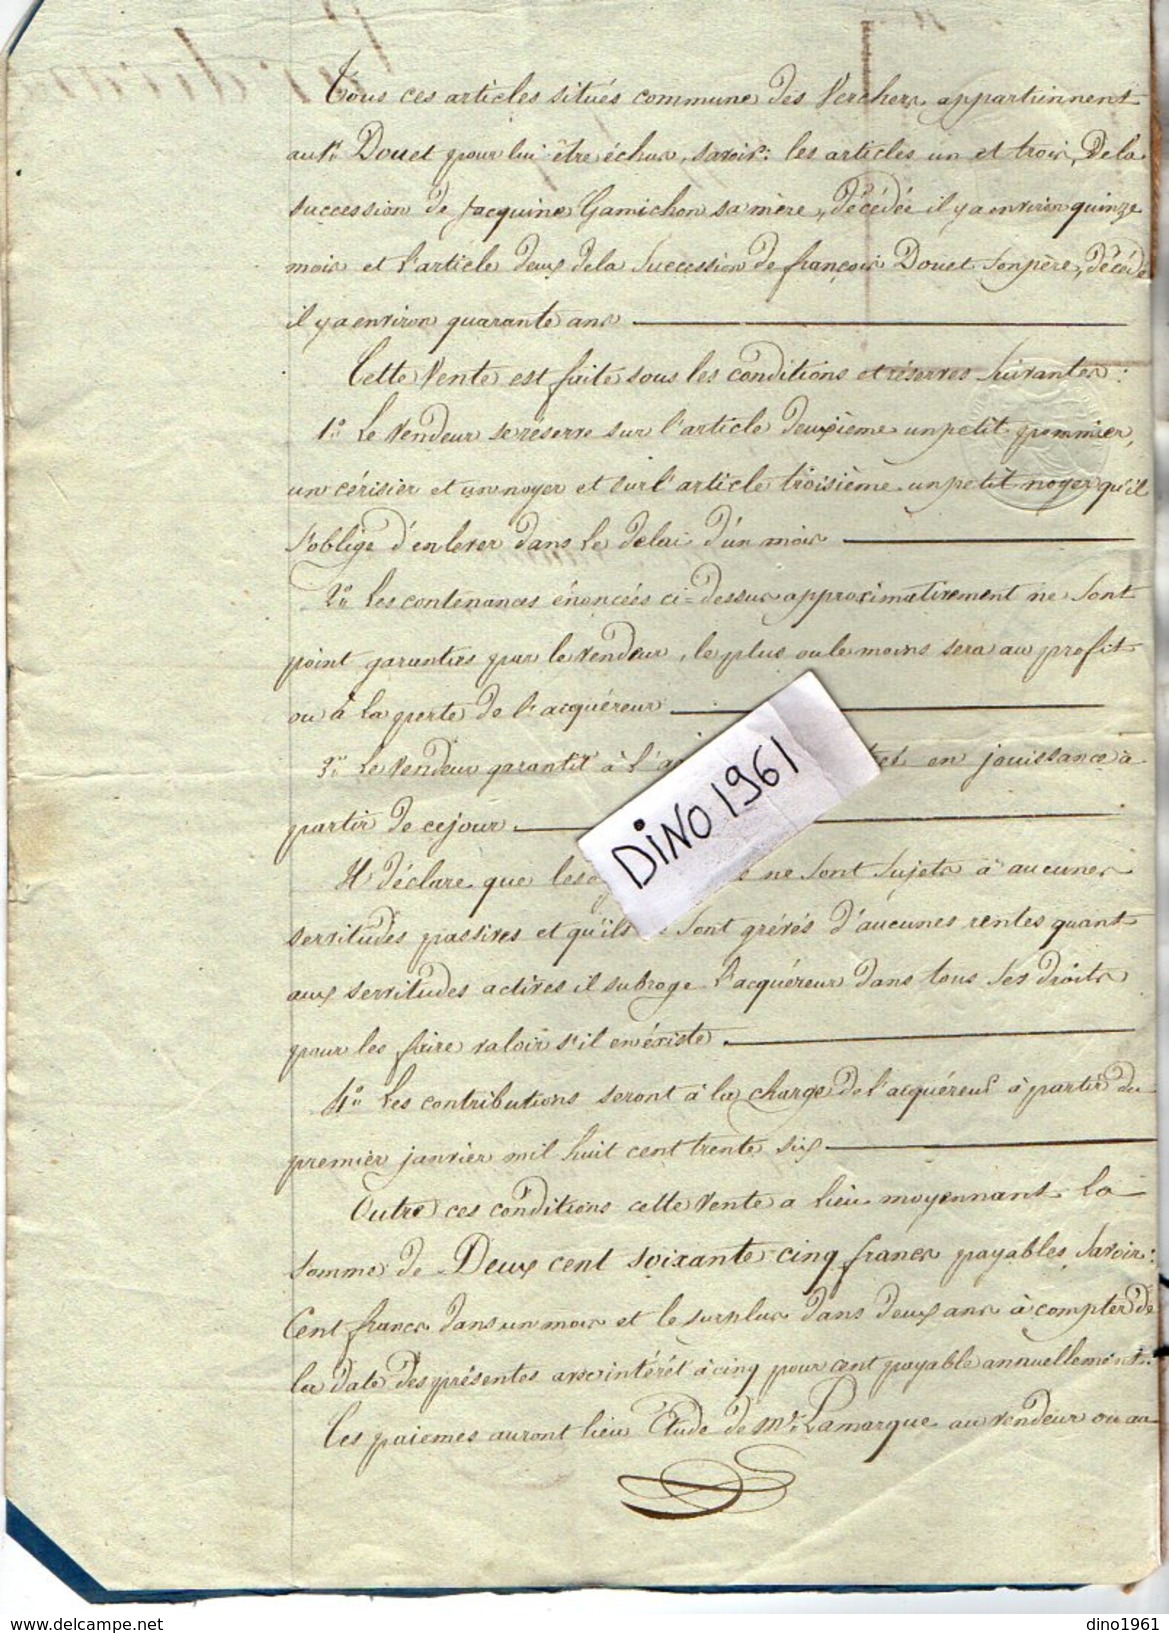 Tous ces articles situés commune des Verchers appartiennent
au Sr. Douet pour lui être échus, savoir: les articles un et trois, de la
succession de Jacquine Gamichon sa mère, décédée il y a environ quinze
mois et l'article deux de la succession de françois Douet son père, décédé
il y a environ quarante ans
Cette Vente est faite sous les conditions et réserves suivantes:
1o. Le Vendeur se réserve sur l'article deuxième un petit pommier,
un cérisier et un noyer et sur l'article troisième un petit noyer qu'il
s'oblige d'enlever dans le delai d'un mois
2o. Les contenances énoncées ci-dessus approximativement ne sont
point garanties par le vendeur, le plus ou le moins sera au profit
ou à la perte de l'acquéreur
3o. Le Vendeur garantit à l' en jouissance à
partir de ce jour
Il déclare que les ne sont sujets à aucunes
servitudes passives et qu'ils sont grévés d'aucunes rentes quant
aux servitudes actives il subroge l'acquéreur dans tous ses droits
pour les faire valoir s'il en éxiste
4o. Les contributions seront à la charge de l'acquéreur à partir du
premier janvier mil huit cent trente six
Outre ces conditions cette vente a lieu moyennant la
somme de Deux cent soixante cinq francs payables, savoir:
Cent francs dans un mois et le surplus dans deux ans à compter de
la date des présentes avec intérêt à cinq pour cent payable annuellement.
Ces paiemes auront lieu Etude de Me. Lamarque au vendeur ou au
DINO 1961
delcampe.net
dino1961